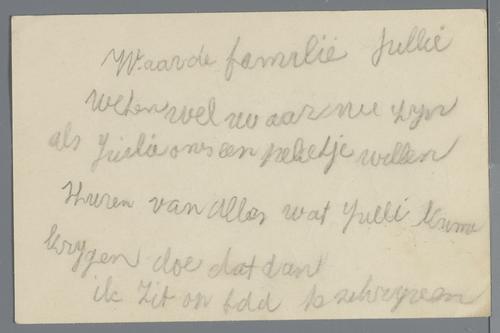 Waarde familie Jullie
weten wel waar we zyn
als Jullie ons een paketje willen
sturen van alles wat Julli kunne
krygen doe dat dan
ik zit op bed te schryven